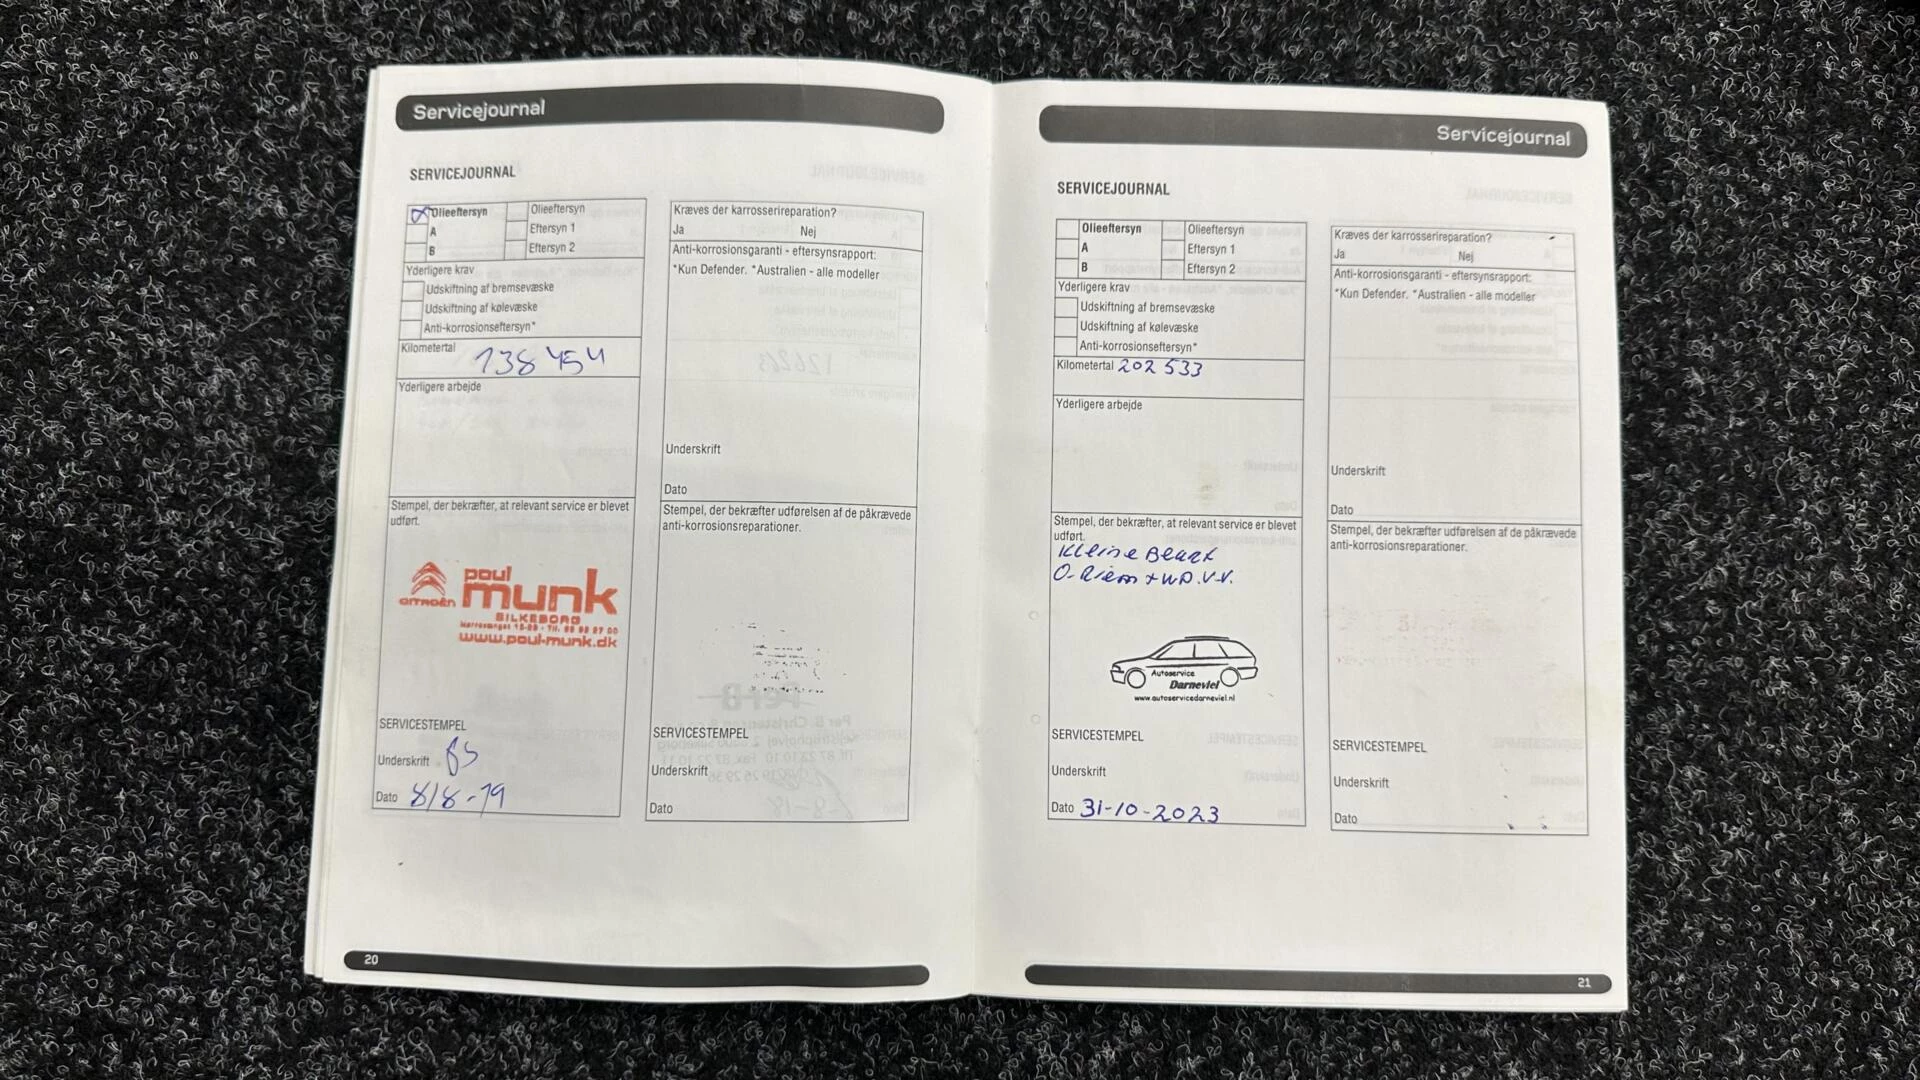 Servicejournal
SERVICEJOURNAL
Olieeftersyn
A
B
Olieeftersyn
Eftersyn 1
Eftersyn 2
Yderligere krav
Udskiftning af bremsevæske
Udskiftning af kølevæske
Anti-korrosionseftersyn*
Kilometertal 138 454
Yderligere arbejde
Stempel, der bekræfter, at relevant service er blevet
udført.
CITROËN
poul
munk
SILKEBORG
www.poul-munk.dk
SERVICESTEMPEL
Underskrift
Dato 8/8-19
Kræves der karrosserireparation?
Ja Nej
Anti-korrosionsgaranti - eftersynsrapport:
*Kun Defender. *Australien - alle modeller
Underskrift
Dato
Stempel, der bekræfter udførelsen af de påkrævede
anti-korrosionsreparationer.
SERVICESTEMPEL
Underskrift
Dato
20
Servicejournal
SERVICEJOURNAL
Olieeftersyn
A
B
Olieeftersyn
Eftersyn 1
Eftersyn 2
Yderligere krav
Udskiftning af bremsevæske
Udskiftning af kølevæske
Anti-korrosionseftersyn*
Kilometertal 202 533
Yderligere arbejde
Stempel, der bekræfter, at relevant service er blevet
udført.
Kleine Beurt
O-Riem + WP. V.V.
Autoservice
Darneviel
www.autoservicedarneviel.nl
SERVICESTEMPEL
Underskrift
Dato 31-10-2023
Kræves der karrosserireparation?
Ja Nej
Anti-korrosionsgaranti - eftersynsrapport:
*Kun Defender. *Australien - alle modeller
Underskrift
Dato
Stempel, der bekræfter udførelsen af de påkrævede
anti-korrosionsreparationer.
SERVICESTEMPEL
Underskrift
Dato
21